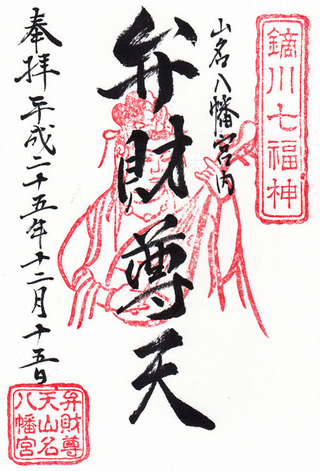 鏑川七福神
山名八幡宮内
弁財尊天
奉拝 平成二十五年十二月十五日
弁財尊
天山名
八幡宮